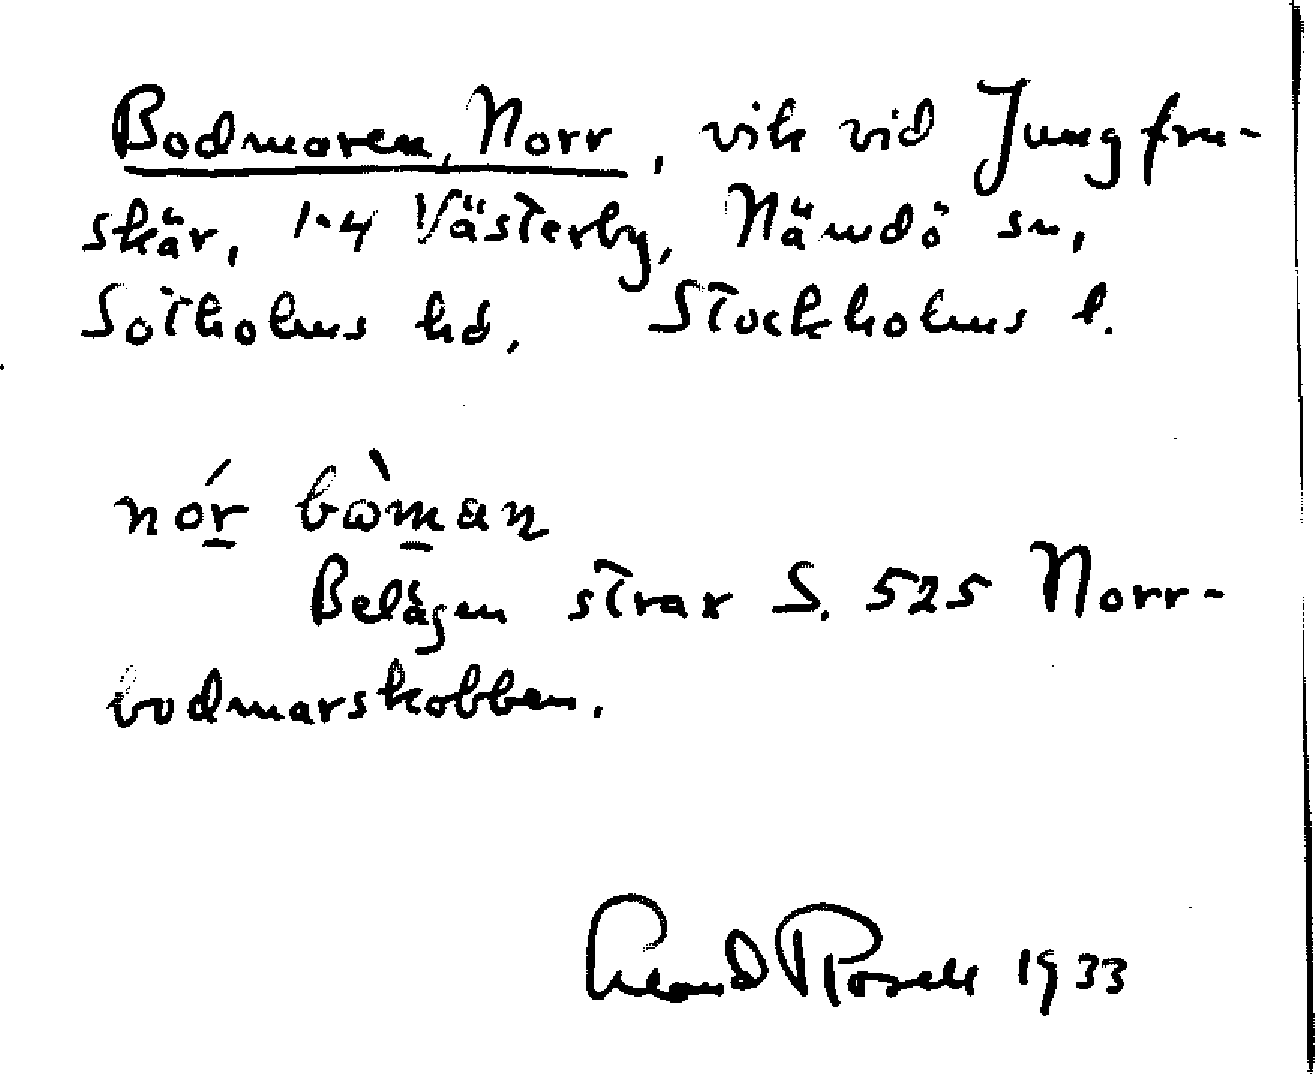 Bodmaren, Norr, vik vid Jungfru-
skär, 1-4 Västerby, Nämdö sn,
Sotholms hd, Stockholms l.
nór bòman
Belägen strax S. 525 Norr-
bodmarskobben.
Rosell 1933